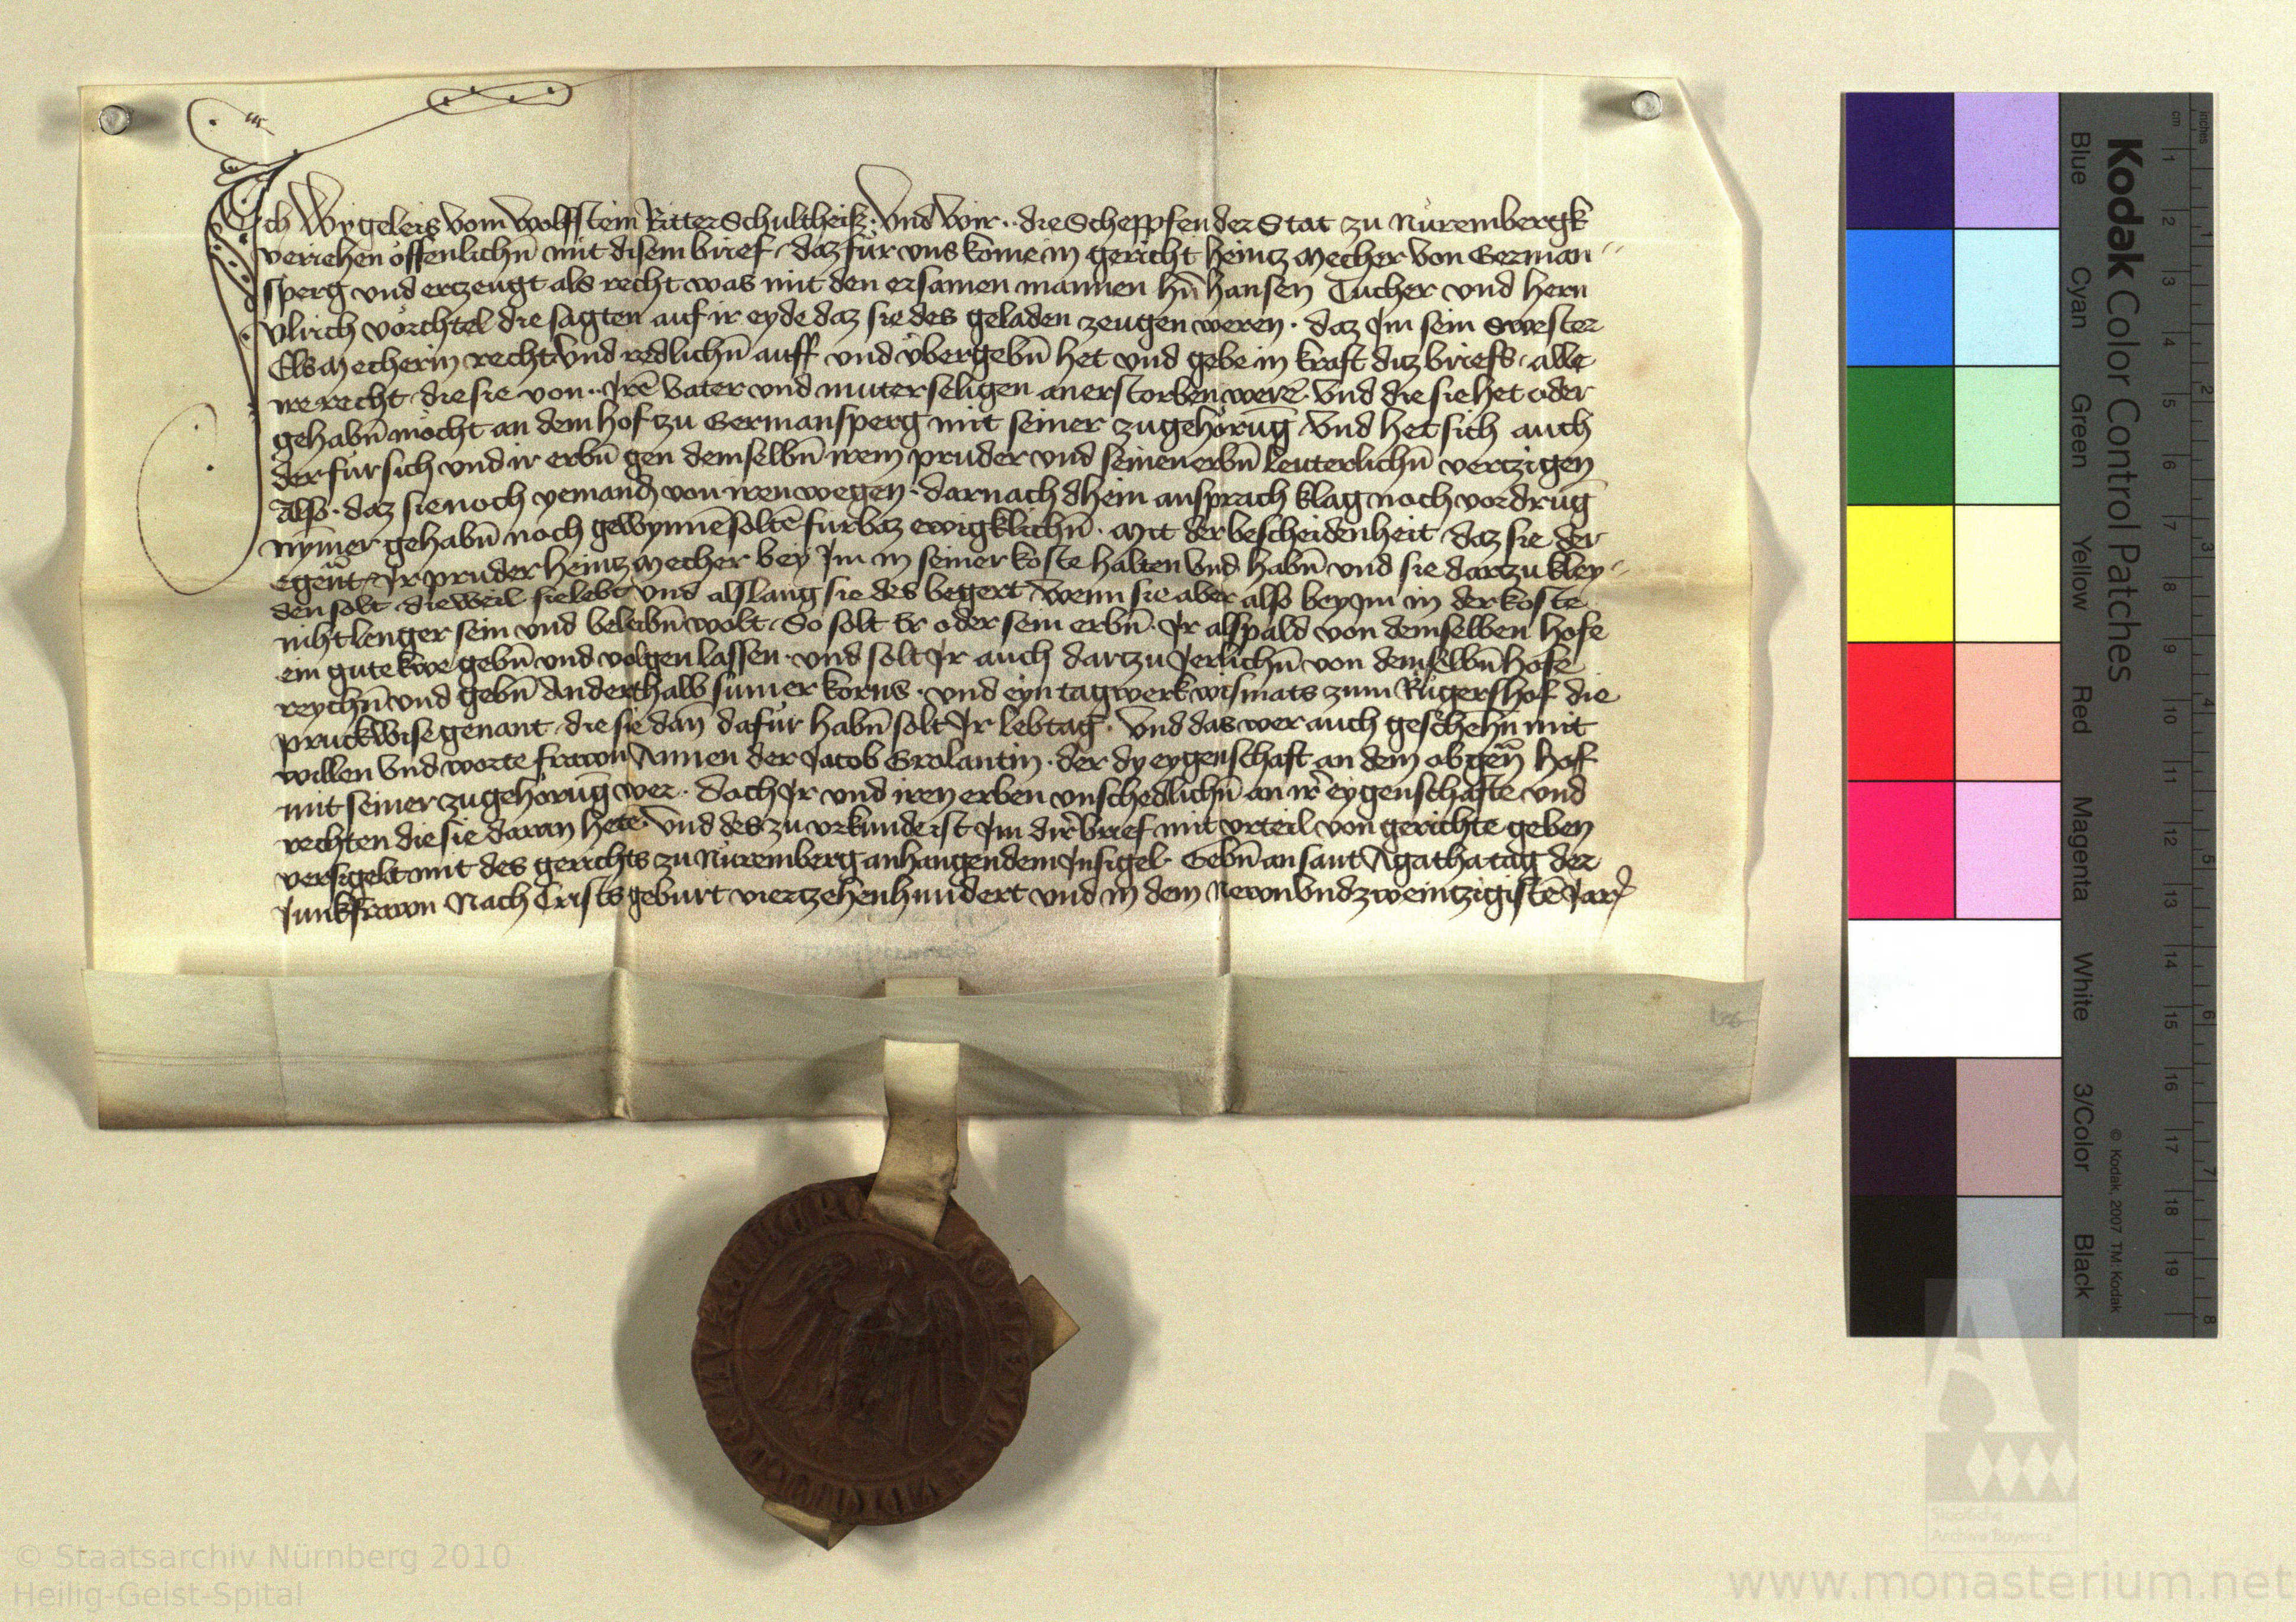 Ich Wygeleis vom Wolffstein Ritter Schultheiß. Und Wir ·· die Scheppfen der Stat zu Nürembergk
veriehen offenlichn̄ mit disem brief / daz für vns kome in gericht Heintz Mecher von German-
sperg vnd ertzeugt als recht was mit den ersamen mannen hn̄ hansen Tucher vnd hern
Vlrich vörchtel die sagten auf ir eyde daz sie des geladen zeugen weren · daz Im sein swester
Els Mecherin recht vnd redlichn̄ auff vnd vbergebn̄ het vnd gebe in kraft ditz briefs · alle
ire recht die sie von ·· Irē vater vnd muter seligen anerstorben werē vnd die sie het oder
gehabn̄ möcht an dem hof zu Germansperg mit seiner zugehörūg Vnd het sich auch
der für sich vnd ir erbn̄ gen demselbn̄ irem pruder vnd seinen erbn̄ leuterlichn̄ vertzigen
Also · daz sie noch yemand von iren wegen · darnach dhein ansprach klag noch vordrūg
nym̄er gehabn̄ noch gewynnē soltē fürbaz ewigklichn̄ · Mit der bescheidenheit · daz sie der
egen̄t Ir pruder Heintz Mecher bey Im in seiner koste halten vnd habn̄ vnd sie dartzu kley-
den solt · dieweil sie lebt vnd alslang sie des begert Wenn sie aber also bey Im in der koste
niht lenger sein vnd beleibn̄ wolt · So solt Er oder sein erbn̄ · Ir alspald von demselben hofe
ein gute kwe gebn̄ vnd volgen lassen · vnd solt Ir auch dartzu Jerlichn̄ von demselbn̄ hofe
reychn̄ vnd gebn̄ Anderthalb sümer korns · vnd eyn tagwerk wismats zum Rügershof die
pruckwise genant die sie dan̄ dafür habn̄ solt Ir lebtag · Vnd das wer auch geschehn̄ mit
willen vnd worte frawn Annen der Jacob Grolantin · der dy eygenschaft an dem obgen̄ hof
mit seiner zugehörūg wer · doch Ir vnd iren erben vnschedlichn̄ an ir̄ eygenschafte vnd
rechten die sie daran hetē Vnd des zu vrkunde ist Im dir̄ brief mit vrteil von gerichte geben
versigelt mit des gerichts zu Nüremberg anhangendem Insigel · Gebn̄ an sant Agatha tag der
Junkfrawn Nach Crists geburt viertzehenhundert vnd in dem Newnvndzweintzigistē Jar
Kodak Color Control Patches
Blue Cyan Green Yellow Red Magenta White 3/Color Black
© Kodak, 2007 TM: Kodak
cm 1 2 3 4 5 6 7 8 9 10 11 12 13 14 15 16 17 18 19
inches 1 2 3 4 5 6 7 8
Staatliche
Archive Bayerns
© Staatsarchiv Nürnberg 2010
Heilig-Geist-Spital
www.monasterium.net